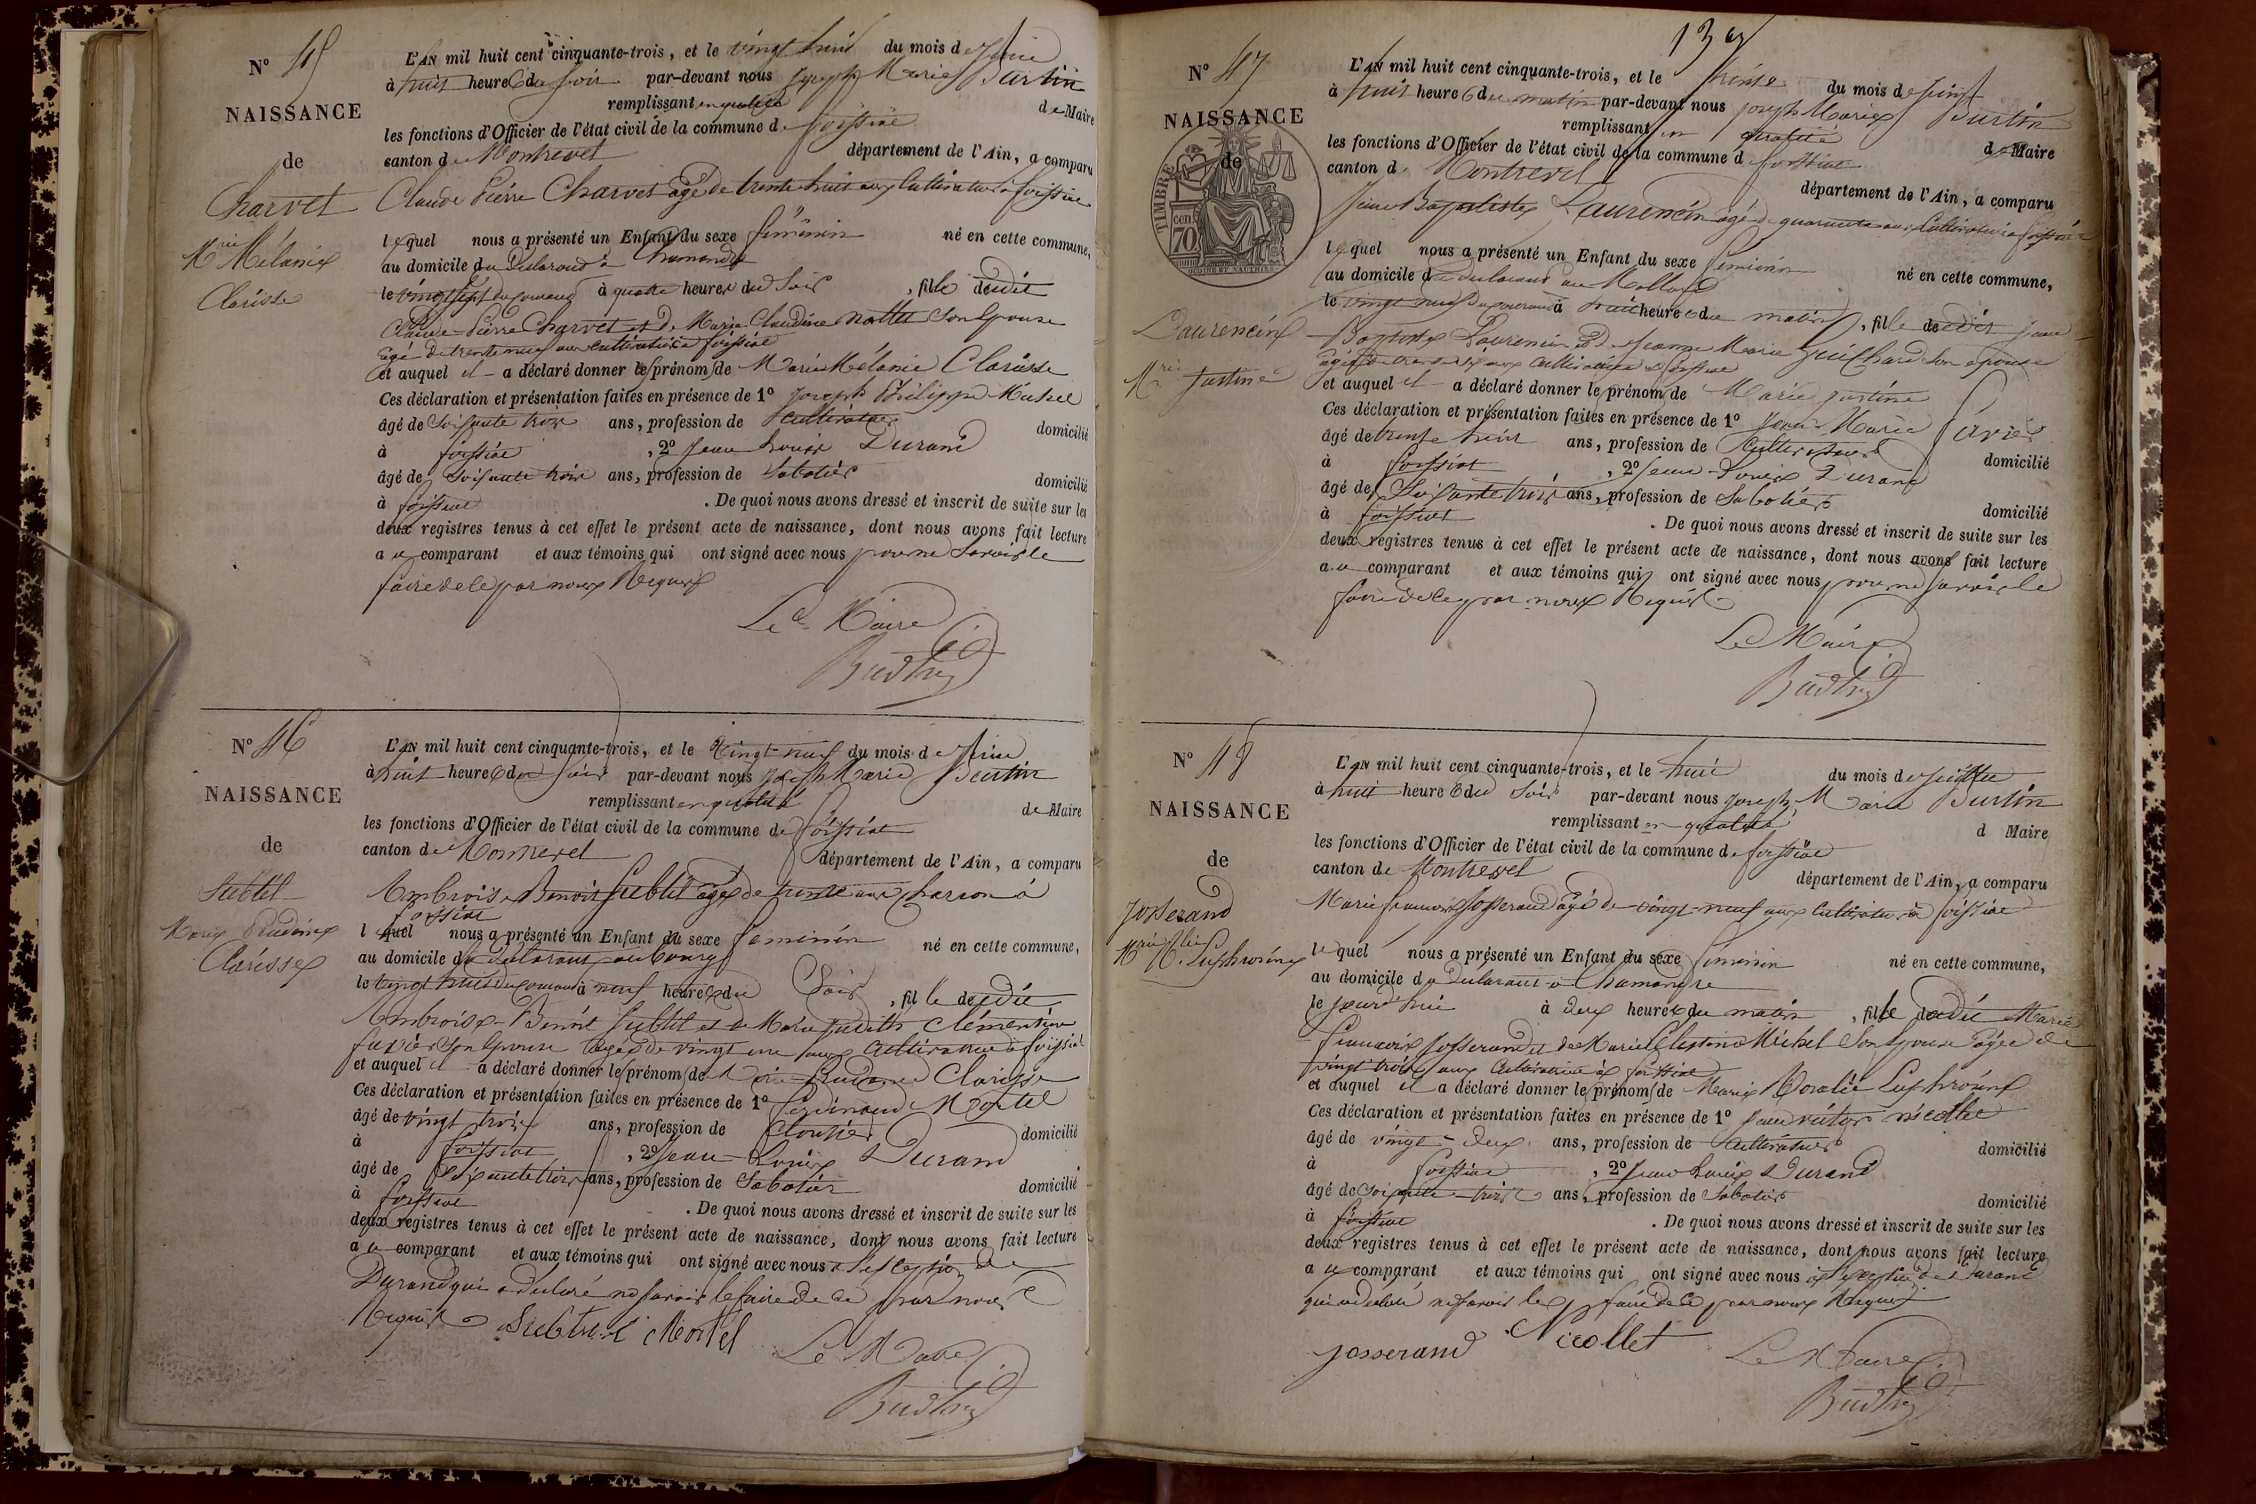 N° 45
NAISSANCE
de
Charvet
Mrie Mélanie
Clarisse
L'AN mil huit cent cinquante-trois, et le vingt huit du mois de Juin
à huit heures du soir par-devant nous Joseph Marie Burtin
remplissant en qualité de Maire
les fonctions d'Officier de l'état civil de la commune de foissiat
canton de Montrevel département de l'Ain, a comparu
Claude Pierre Charvet agé de trente huit ans Cultivateur à foissiat
lequel nous a présenté un Enfant du sexe féminin né en cette commune,
au domicile du Déclarant à Chamandre
le vingt sept du courant à quatre heures du Soir, fille dudit
Claude-Pierre Charvet et de Marie Claudine Son Epouse
agé de trente neuf ans cultivatrice à foissiat
et auquel il a déclaré donner les prénoms de Marie Mélanie Clarisse
Ces déclaration et présentation faites en présence de 1° Joseph Philippe Michel
âgé de Soixante trois ans, profession de Cultivateur domicilié
à foissiat, 2° Jean Louis Durand
âgé de Soixante trois ans, profession de Sabotier domicilié
à foissiat. De quoi nous avons dressé et inscrit de suite sur les
deux registres tenus à cet effet le présent acte de naissance, dont nous avons fait lecture
au comparant et aux témoins qui ont signé avec nous pour ne Savoir le
faire de ce par nous Requis
Le Maire
Burtin
N° 46
NAISSANCE
de
Sublet
Marie Prudence
Clarisse
L'AN mil huit cent cinquante-trois, et le vingt-neuf du mois de Juin
à huit heures du soir par-devant nous Joseph Marie Burtin
remplissant en qualité de Maire
les fonctions d'Officier de l'état civil de la commune de foissiat
canton de Montrevel département de l'Ain, a comparu
Ambroise Benoit Sublet agé de trente ans Charron à
foissiat
lequel nous a présenté un Enfant du sexe féminin né en cette commune,
au domicile du déclarant au bourg
le vingt huit du courant à neuf heures du Soir, fille dudit
Ambroise-Benoit Sublet et de Marie Judith Clémentine
favier Son Epouse agée de vingt une ans Cultivatrice à foissiat
et auquel il a déclaré donner les prénoms de Marie Prudence Clarisse
Ces déclaration et présentation faites en présence de 1° ferdinand Mortel
âgé de vingt trois ans, profession de Cloutier domicilié
à foissiat, 2° Jean-Louis Durand
âgé de Soixante trois ans, profession de Sabotier domicilié
à foissiat. De quoi nous avons dressé et inscrit de suite sur les
deux registres tenus à cet effet le présent acte de naissance, dont nous avons fait lecture
au comparant et aux témoins qui ont signé avec nous à l'exception de
Durand qui a déclaré ne savoir le faire de ce par nous
Requis Sublet Mortel
Le Maire
Burtin
N° 47
NAISSANCE
de
TIMBRE
70 cen
Laurencin
Mrie Justine
L'AN mil huit cent cinquante-trois, et le trente du mois de Juin
à huit heures du matin par-devant nous Joseph Marie Burtin
remplissant en qualité de Maire
les fonctions d'Officier de l'état civil de la commune de foissiat
canton de Montrevel département de l'Ain, a comparu
Jean Baptiste Laurencin agé de quarante ans Cultivateur à foissiat
lequel nous a présenté un Enfant du sexe féminin né en cette commune,
au domicile du déclarant au Mollard
le vingt neuf du courant à huit heures du matin, fille dudit Jean
Baptiste Laurencin et de Jeanne Marie Guichard Son épouse
agée de trente six ans Cultivatrice à foissiat
et auquel il a déclaré donner les prénoms de Marie Justine
Ces déclaration et présentation faites en présence de 1° Jean Marie
âgé de trente huit ans, profession de Cultivateur domicilié
à foissiat, 2° Jean-Louis Durand
âgé de Soixante trois ans, profession de Sabotier domicilié
à foissiat. De quoi nous avons dressé et inscrit de suite sur les
deux registres tenus à cet effet le présent acte de naissance, dont nous avons fait lecture
au comparant et aux témoins qui ont signé avec nous pour ne savoir le
faire de ce par nous Requis
Le Maire
Burtin
N° 48
NAISSANCE
de
Josserand
Mrie Rlie Euphrosine
L'AN mil huit cent cinquante-trois, et le huit du mois de Juillet
à huit heures du Soir par-devant nous Joseph Marie Burtin
remplissant en qualité d Maire
les fonctions d'Officier de l'état civil de la commune de foissiat
canton de Montrevel département de l'Ain, a comparu
Marie françois Josserand agé de vingt-neuf ans Cultivateur à foissiat
lequel nous a présenté un Enfant du sexe féminin né en cette commune,
au domicile du Déclarant à Chamandre
le jourd'hui à deux heures du matin, fille dudit Marie
françois Josserand et de Marie Célestine Michel Son Epouse agée de
vingt trois ans Cultivatrice à foissiat
et auquel il a déclaré donner les prénoms de Marie Rosalie Euphrosine
Ces déclaration et présentation faites en présence de 1° Jean victor nicollet
âgé de vingt-deux ans, profession de Cultivateur domicilié
à foissiat, 2° Jean Louis Durand
âgé de Soixante-trois ans, profession de Sabotier domicilié
à foissiat. De quoi nous avons dressé et inscrit de suite sur les
deux registres tenus à cet effet le présent acte de naissance, dont nous avons fait lecture
au comparant et aux témoins qui ont signé avec nous à l'exception de Durand
qui a déclaré ne savoir le faire de ce par nous Requis
Josserand Nicollet
Le Maire
Burtin